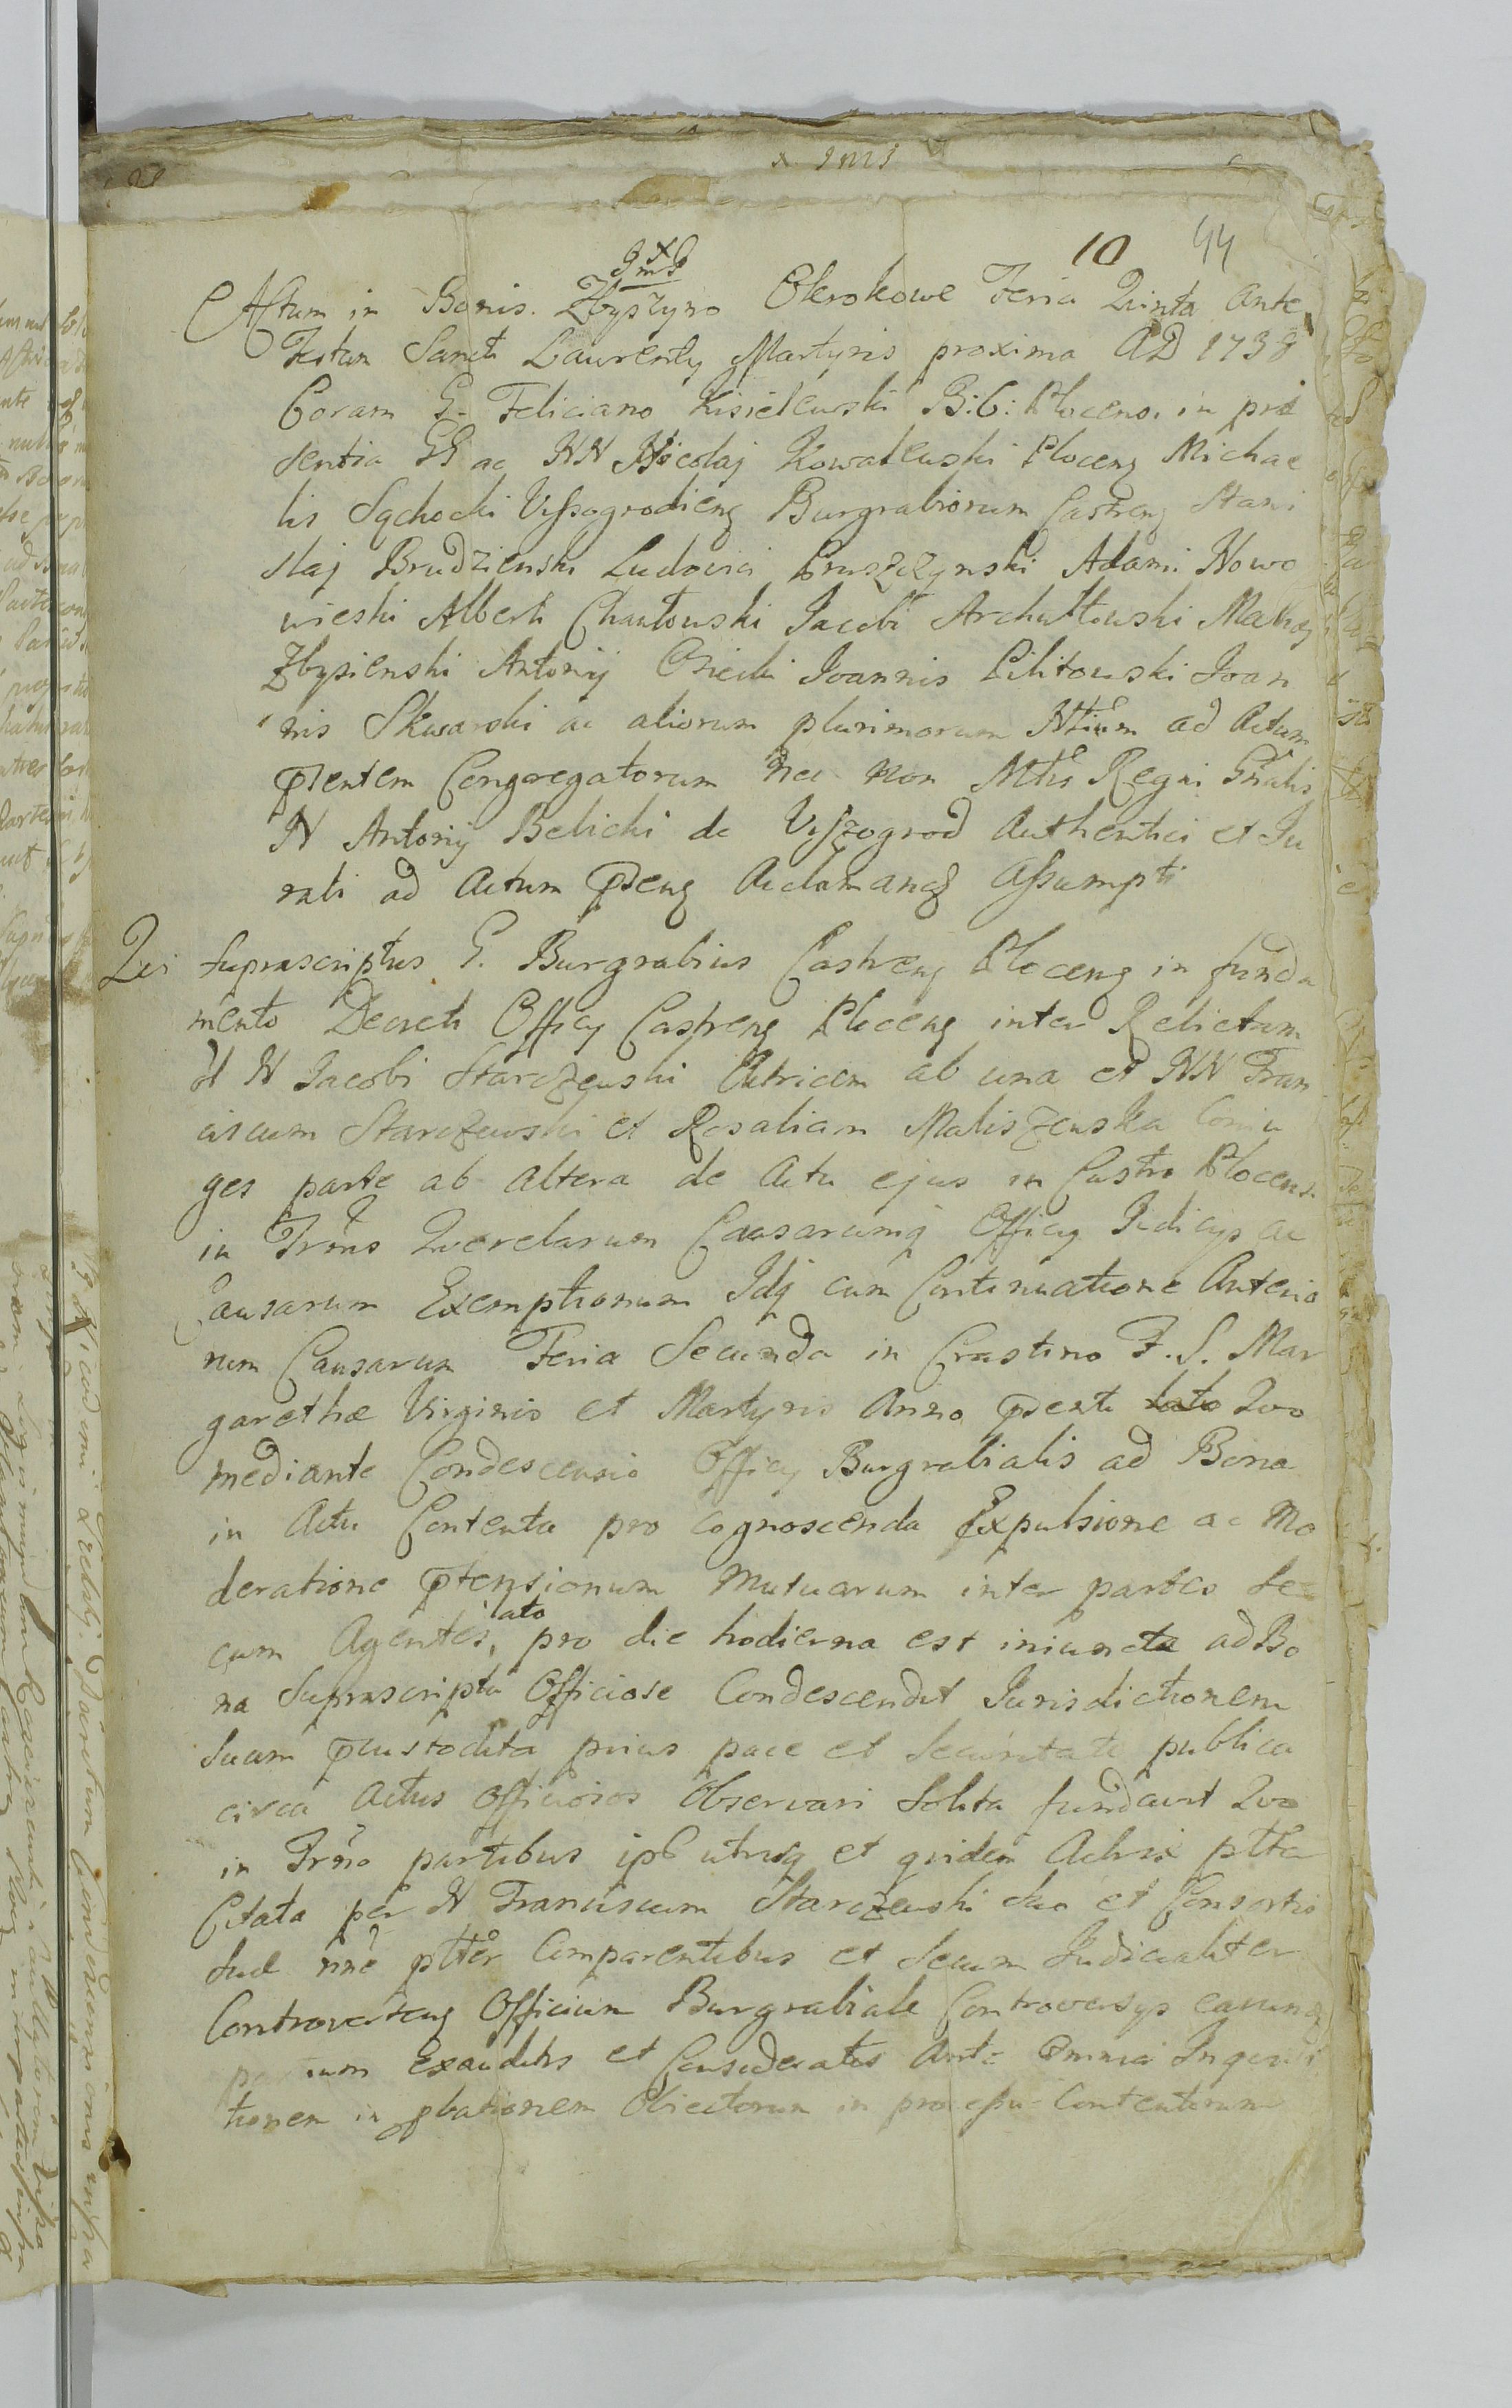 10 44
Actum in Bonis Zbyszyno Olerokowe Feria Quinta ante
Festum Sancti Laurentij Martyris proxima AD 1738
Coram G. Feliciano Kisielewski B: C: Plocens. in præ
sentia GG ac NN Nicolaj Kowalewski Plocens Michae
lis Sąchocki Vyssogrodiens Burgrabiorum Castrens Stani
slaj Brudzienski Ludovici Pruszczynski Adami Nowo
wieski Alberti Chautowski Jacobi Archutowski Mathæj
Zbysienski Antonij Osiecki Joannis Pilitowski Joan
nis Skwarski ac aliorum plurimorum Ntium ad Actum
pntem Congregatorum nec non Mtrlis Regni Gnalis
N Antonij Belicki de Vyszogrod Authentici et Ju
rati ad Actum pntem Aclamand Assumpti
Qui suprascriptus G. Burgrabius Castrens Plocens in funda
mento Decreti Officij Castrens Plocens inter Relictam
N Jacobi Starczewski Actricem ab una et NN Fran
ciscum Starczewski et Rosaliam Maliszewska Coniu
ges parte ab altera de Actu ejus in Castro Plocensi
in Trmis Querelarum Causarumq Officij Judicijs ac
Causarum Exemptionum Idq cum Continuatione Anterio
rum Causarum Feria Secunda in Crastino F. S. Mar
garethæ Virginis et Martyris Anno pnti lato Quo
mediante Condescensio Officij Burgrabialis ad Bona
in Actu Contenta pro cognoscenda Expulsione ac Mo
deratione ptensionum Mutuarum inter partes se
cum Agentes, lato pro die hodierna est iniuncta ad Bo
na Suprascripta Officiose Condescendit Jurisdictionem
suam pcustodita prius pace et securitate publica
circa Actus Officiosos Observari solita fundavit Quo
in Trmo partibus ips utrisq et quidem Actrice pltr
Citata per N Franciscum Starczewski suo et Consortis
suæ nne plttr Comparentibus et secum Judicialiter
Controvertens Officium Burgrabiale Controversijs earund
partium Exauditis et Consideratis Ante Omnia Inquisi
tionem in pbationem Obiectorum in processu Contentorum